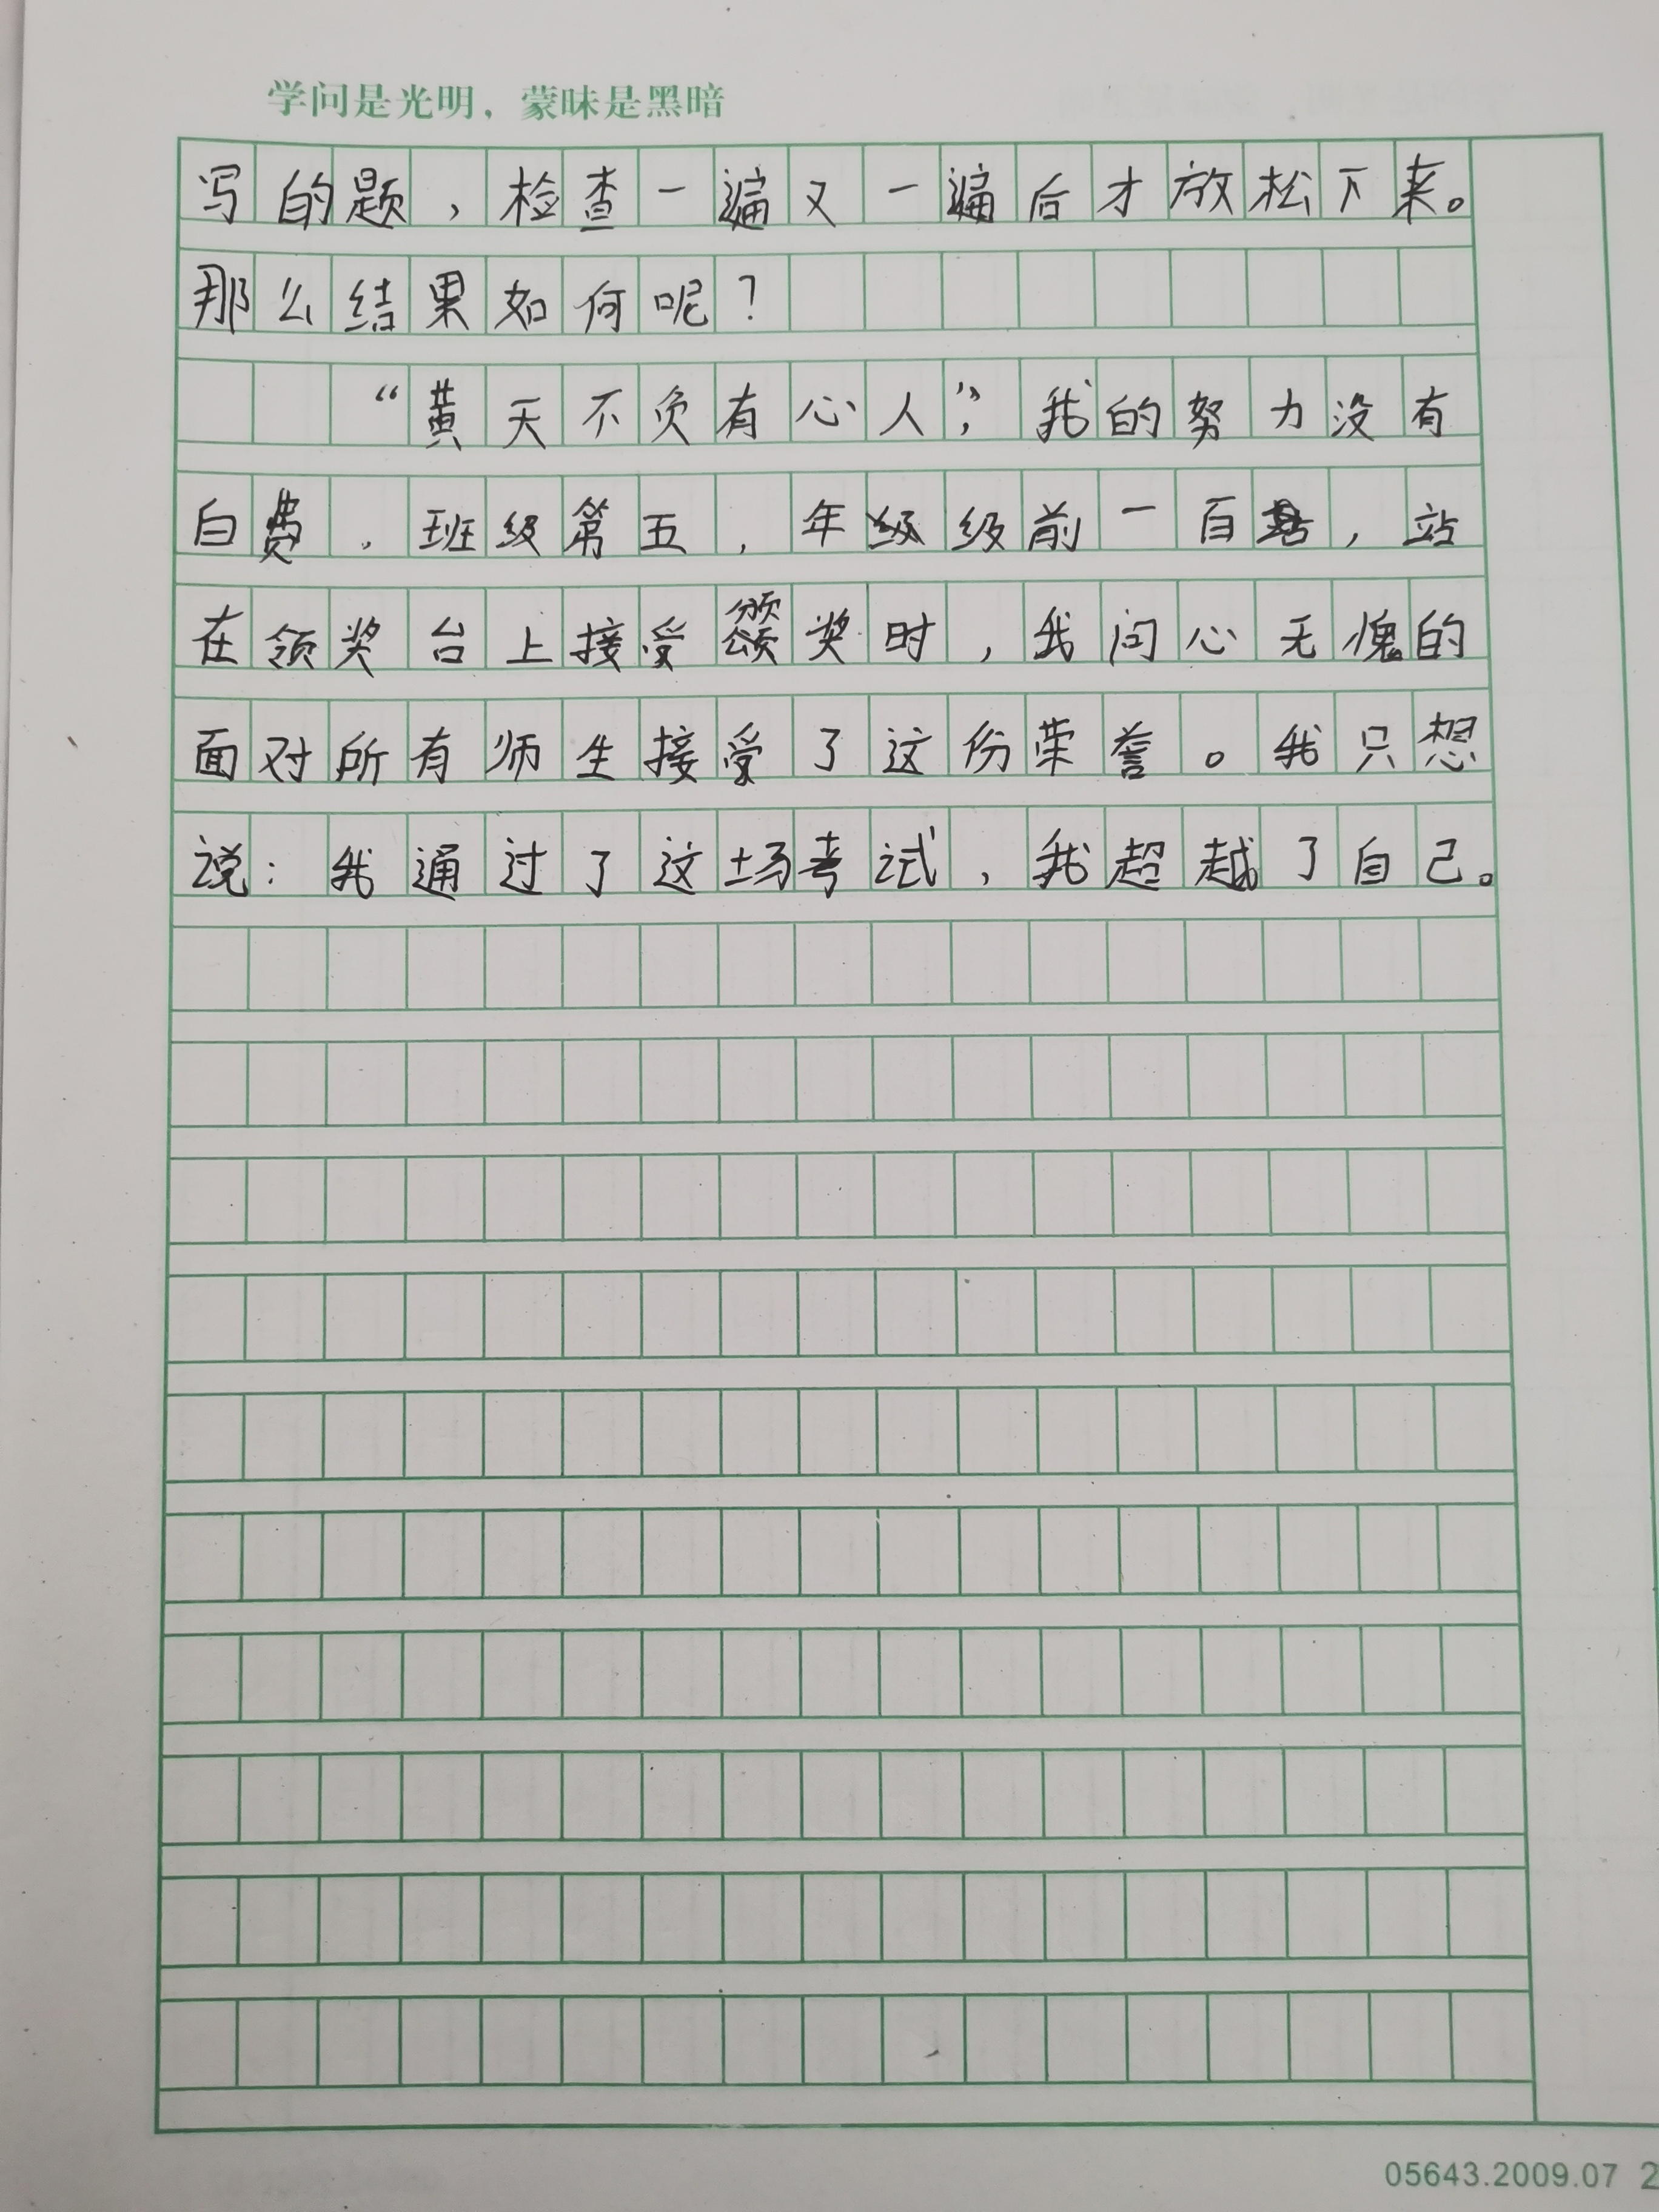 学问是光明，蒙昧是黑暗
写的题，检查一遍又一遍后才放松下来。
那么结果如何呢？
“黄天不负有心人”，我的努力没有
白费，班级第五，年级前一百，站
在领奖台上接受颁奖时，我问心无愧的
面对所有师生接受了这份荣誉。我只想
说：我通过了这场考试，我超越了自己。
05643.2009.07 2